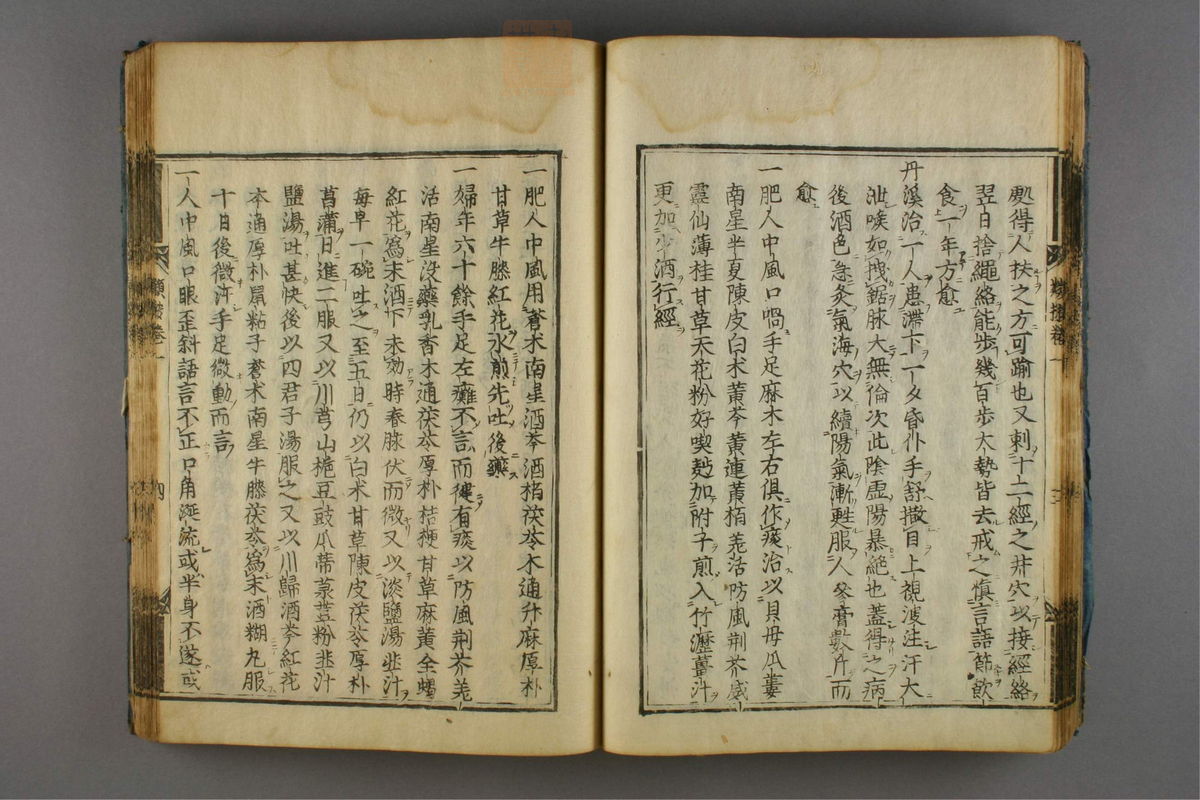 處得人扶之方可踰也又刺十二經之井穴以接經絡
翌日捨繩絡能步幾百步大勢皆去戒之慎言語節飲
食一年方愈
丹溪治一人患滯下一夕昏仆手舒撒目上視溲注汗大
泄喉如拽鋸脉大無倫次此陰虛陽暴絕也蓋得之病
後酒色急灸氣海穴以續陽氣漸甦服人參膏數斤而
愈
一肥人中風口喎手足麻木左右俱作痰治以貝母瓜蔞
南星半夏陳皮白朮黃芩黃連黃栢羌活防風荆芥威
靈仙薄桂甘草天花粉好喫麪加附子煎入竹瀝薑汁
更加少酒行經
類按卷一
三
一肥人中風用蒼朮南星酒芩酒栢茯苓木通升麻厚朴
甘草牛膝紅花水煎先吐後藥
一婦年六十餘手足左癱不言而健有痰以防風荆芥羌
活南星沒藥乳香木通茯苓厚朴桔梗甘草麻黃全蝎
紅花爲末酒下未効時春脉伏而微又以淡鹽湯韭汁
每早一碗吐之至五日仍以白朮甘草陳皮茯苓厚朴
菖蒲日進二服又以川芎山梔豆豉瓜蒂菉荳粉韭汁
鹽湯吐甚快後以四君子湯服之又以川歸酒芩紅花
木通厚朴鼠粘子蒼朮南星牛膝茯苓爲末酒糊丸服
十日後微汗手足微動而言
一人中風口眼歪斜語言不正口角涎流或半身不遂或
類按卷一
四